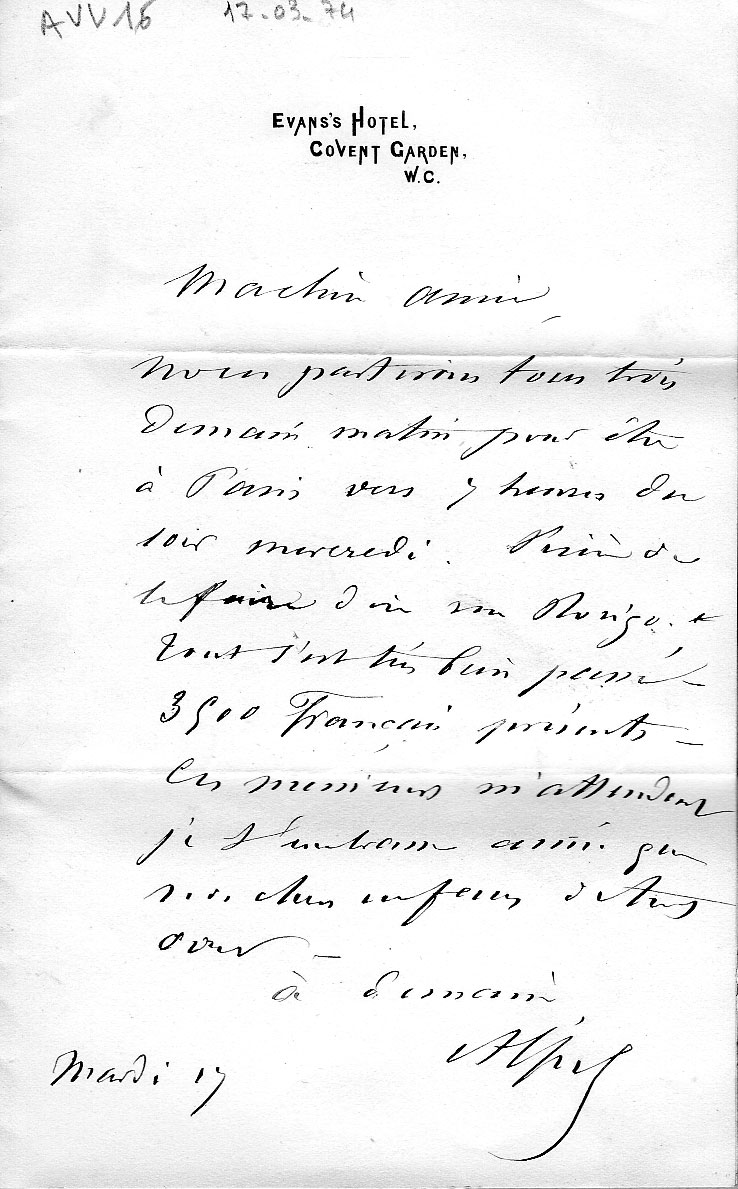 AVV16 17-03-74
EVANS'S HOTEL,
COVENT GARDEN,
W.C.
Ma chère amie,
nous partirons tous trois
demain matin pour être
à Paris vers 7 heures du
soir mercredi. Prière de
le faire dire
tout s'est très bien passé –
3500 Français présents –
Ces messieurs m'attendent
je t'embrasse ainsi que
nos chers enfants de tout
cœur –
à demain
Mardi 17